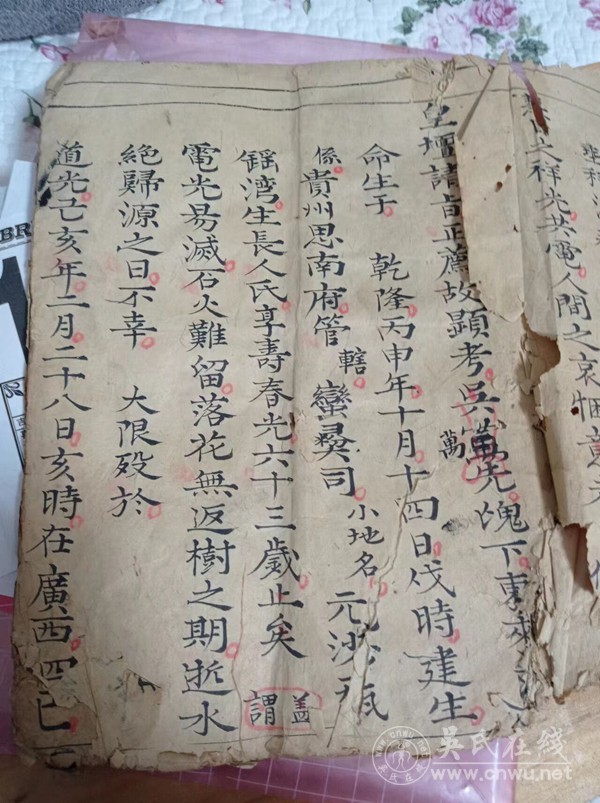 之祥光共電人間之哀悃意
皇壇請旨正薦故顯考吳萬先魄下東來
萬
命生于 乾隆丙申年十月十四日伐時建生
係貴州思南府管轄蠻夷司小地名元沙
鎐湾生長人氏享壽春光六十三歲止矣 盖謂
電光易滅石火難留落花無返樹之期逝水
絶歸源之日不幸 大限殁於
道光己亥年二月二十八日亥時在廣西四巳
吳氏在线
www.cnwu.net
BR